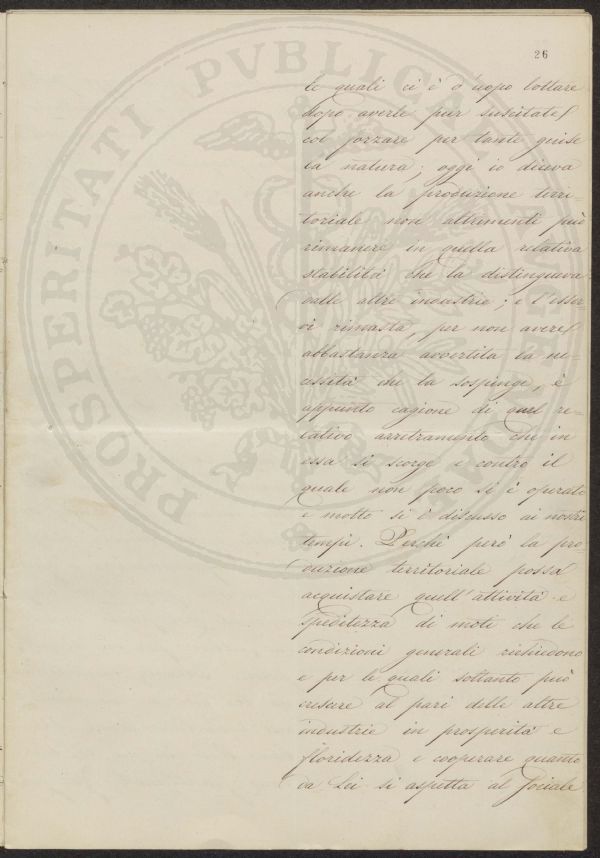 26
le quali ci è d'uopo lottare
dopo averle pur suscitate
col forzare per tante guise
la natura; oggi io diceva
anche la produzione terri-
toriale non altrimenti può
rimanere in quella relativa
stabilità che la distingueva
dalle altre industrie; e l'esser-
vi rimasta, per non avere
abbastanza avvertita la ne-
cessità che la sospinge, è
appunto cagione di quel re-
lativo arretramento che in
essa si scorge e contro il
quale non poco si è operato
e molto si è discusso ai nostri
tempi. Perchè però la pro-
duzione territoriale possa
acquistare quell'attività e
speditezza di moti che le
condizioni generali richiedono
e per le quali soltanto può
crescere al pari delle altre
industrie in prosperità e
floridezza e cooperare quanto
da Lei si aspetta al sociale
PROSPERITATI PVBLICAE